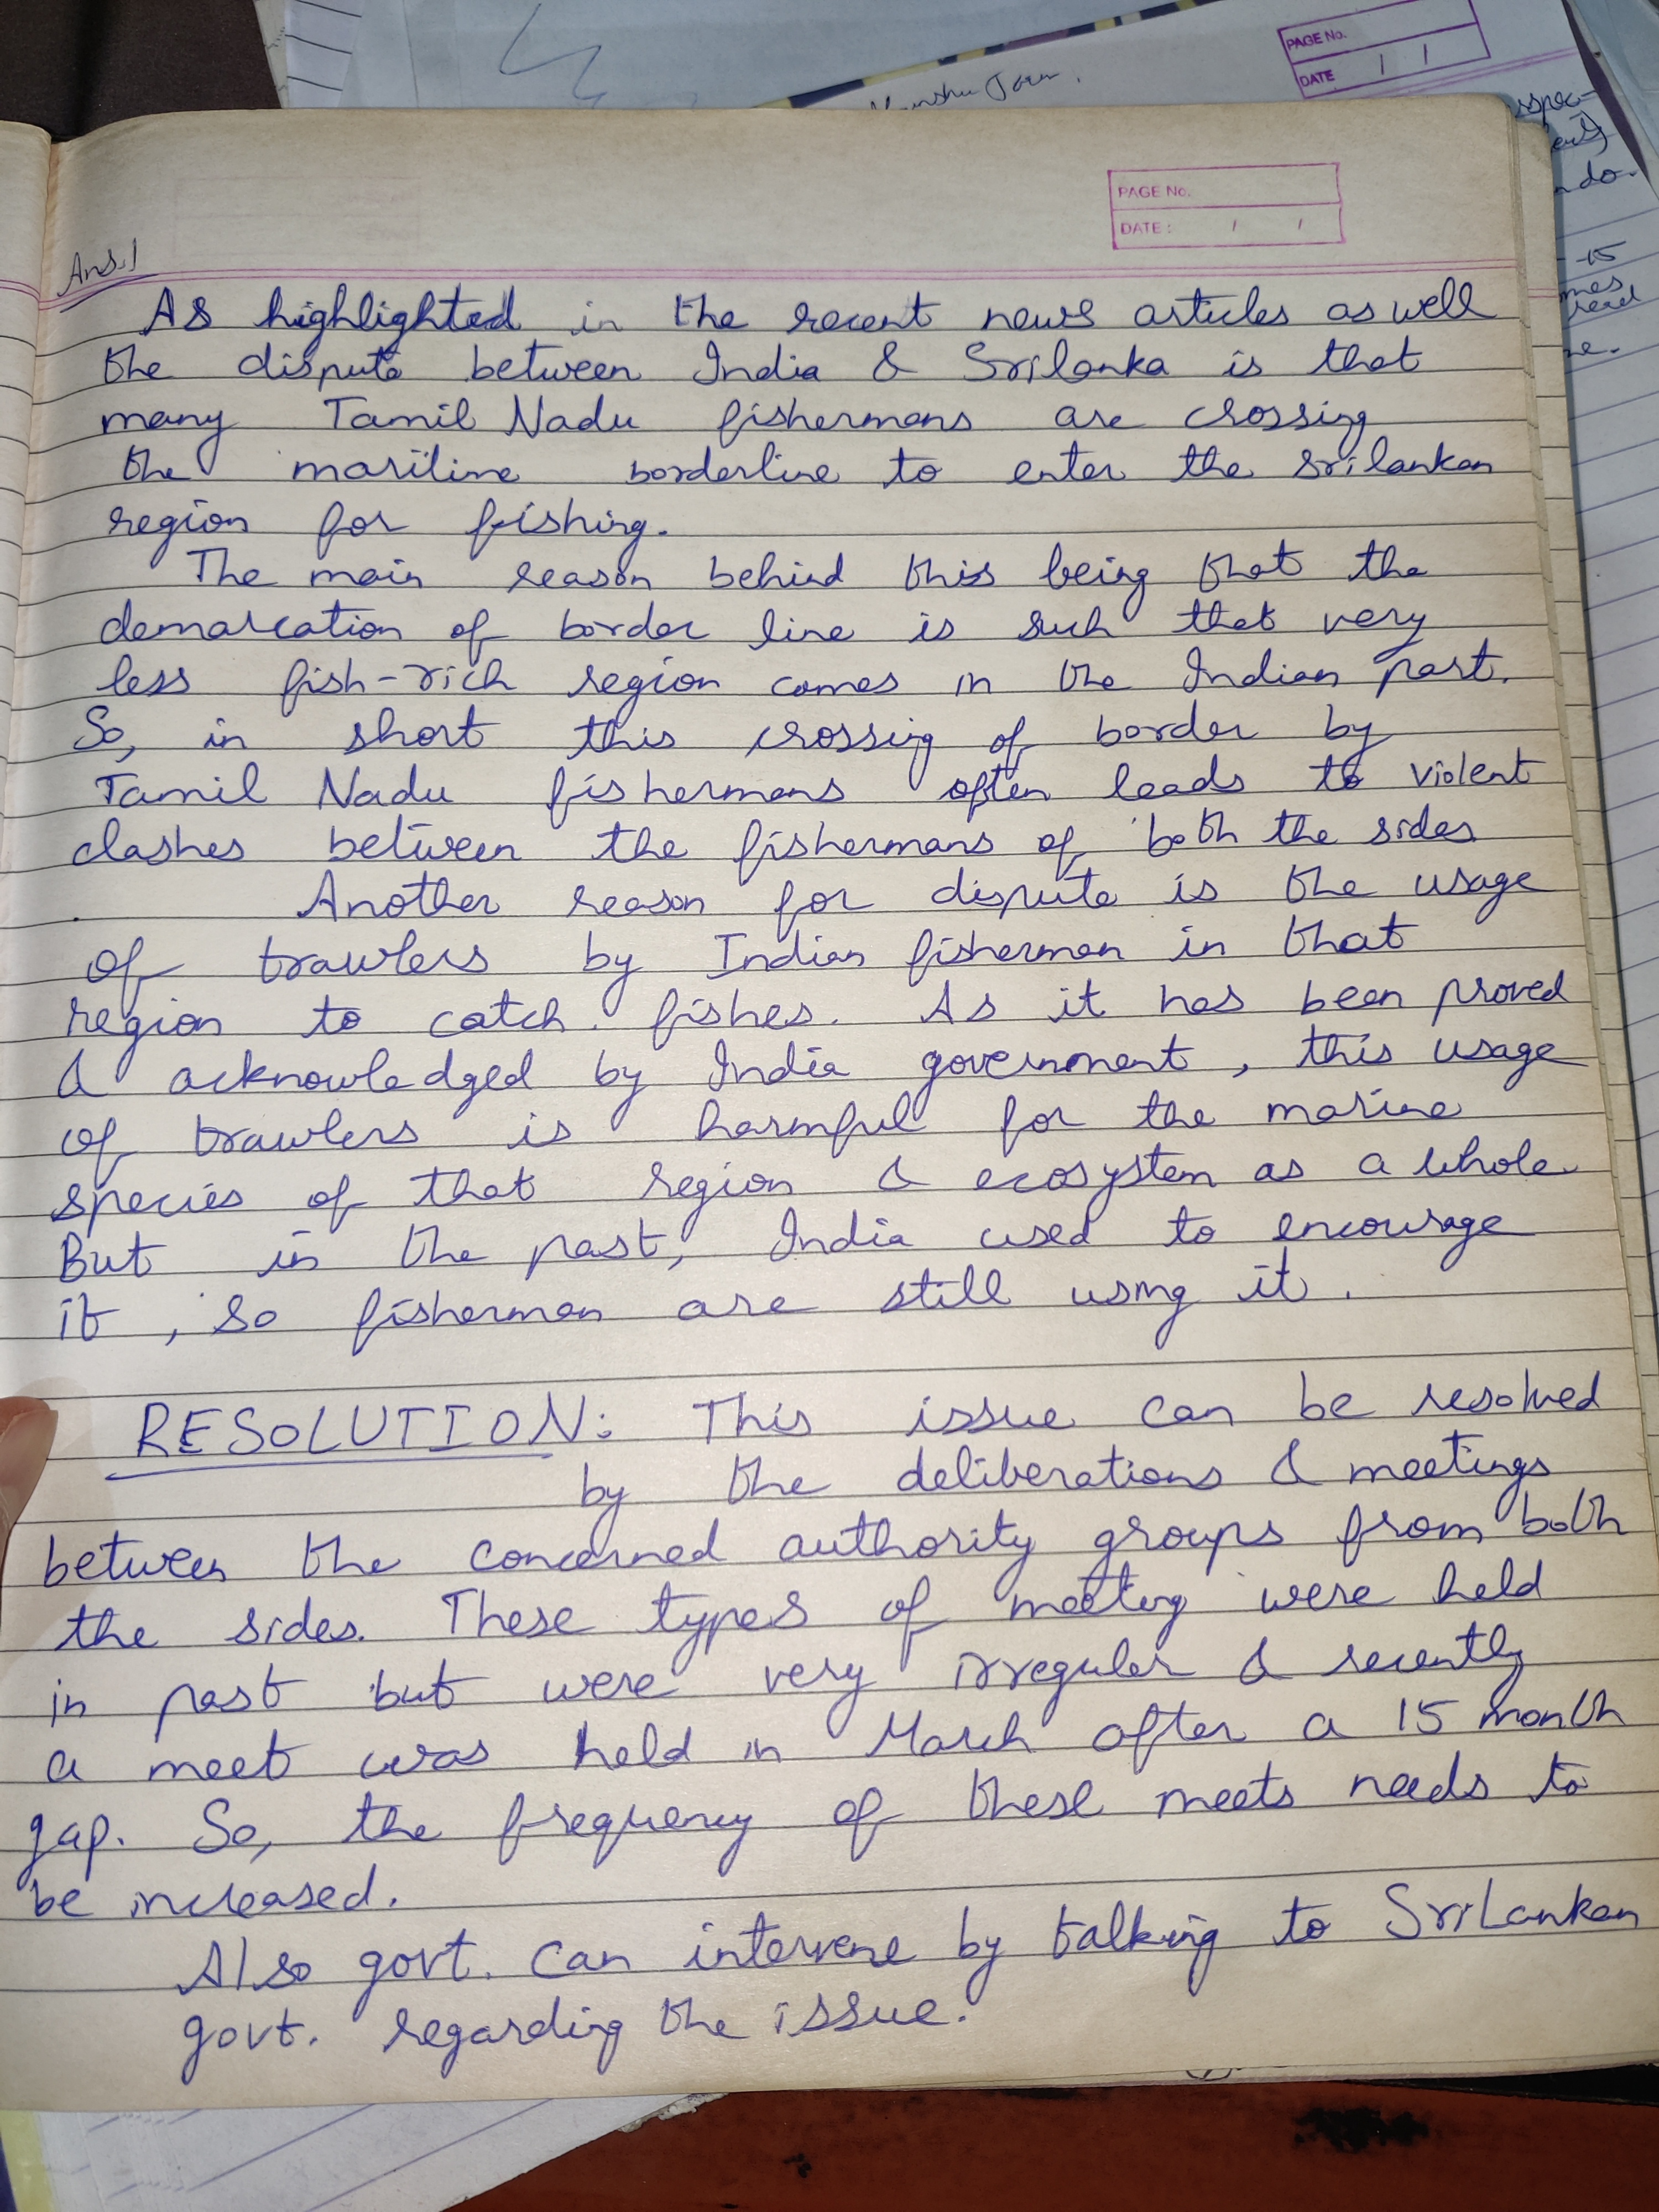 PAGE No.
DATE / /
PAGE No.
DATE : / /
Ans.1
As highlighted in the recent news articles as well
the dispute between India & Srilanka is that
many Tamil Nadu fishermans are crossing
the maritine borderline to enter the srilankan
region for fishing.
The main reason behind this being that the
demarcation of border line is such that very
less fish-rich region comes in the Indian part.
So, in short this crossing of border by
Tamil Nadu fishermans often leads to violent
clashes between the fishermans of both the sides
Another reason for dispute is the usage
of trawlers by Indian fisherman in that
region to catch fishes. As it has been proved
& acknowledged by India government, this usage
of trawlers is harmful for the marine
species of that region & ecosystem as a whole
But in the past, India used to encourage
it, so fisherman are still using it.
RESOLUTION: This issue can be resolved
by the deliberations & meetings
between the concerned authority groups from both
the sides. These types of meeting were held
in past but were very irregular & recently
a meet was held in March after a 15 month
gap. So, the frequency of these meets needs to
be increased.
Also govt. can intervene by talking to SriLankan
govt. regarding the issue.
do.
-15